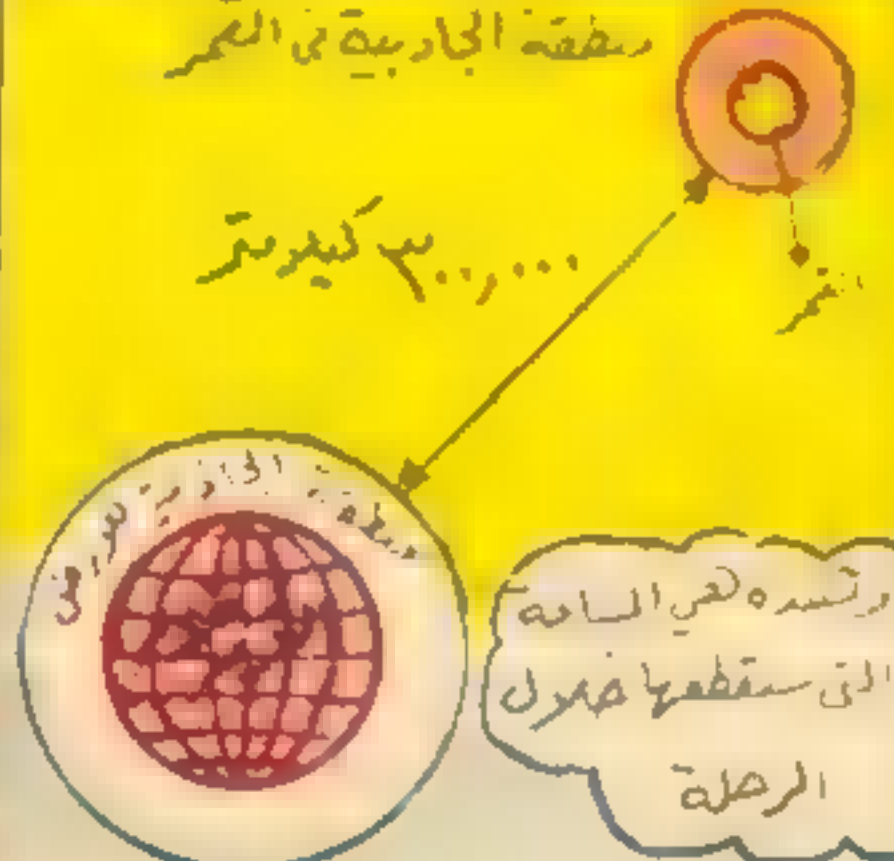 منطقة الجاذبية في القمر
٣٠٠,٠٠٠ كيلومتر
القمر
منطقة الجاذبية للأرض
وتسده هي المسافة
التى ستقطعها خلال
الرحلة